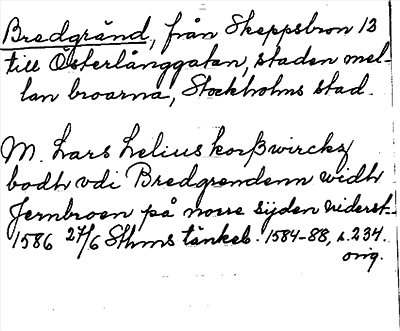 Bredgränd, från Skeppsbron 12
till Österlånggatan, staden mel-
lan broarna, Stockholms stad.
M. Lars Lelius korßwircke
bodh vdi Bredgrendenn widh
Jernbroen på norre sijden viderst.
1586 27/6 Sthms tänkeb. 1584-88, s. 234.
orig.